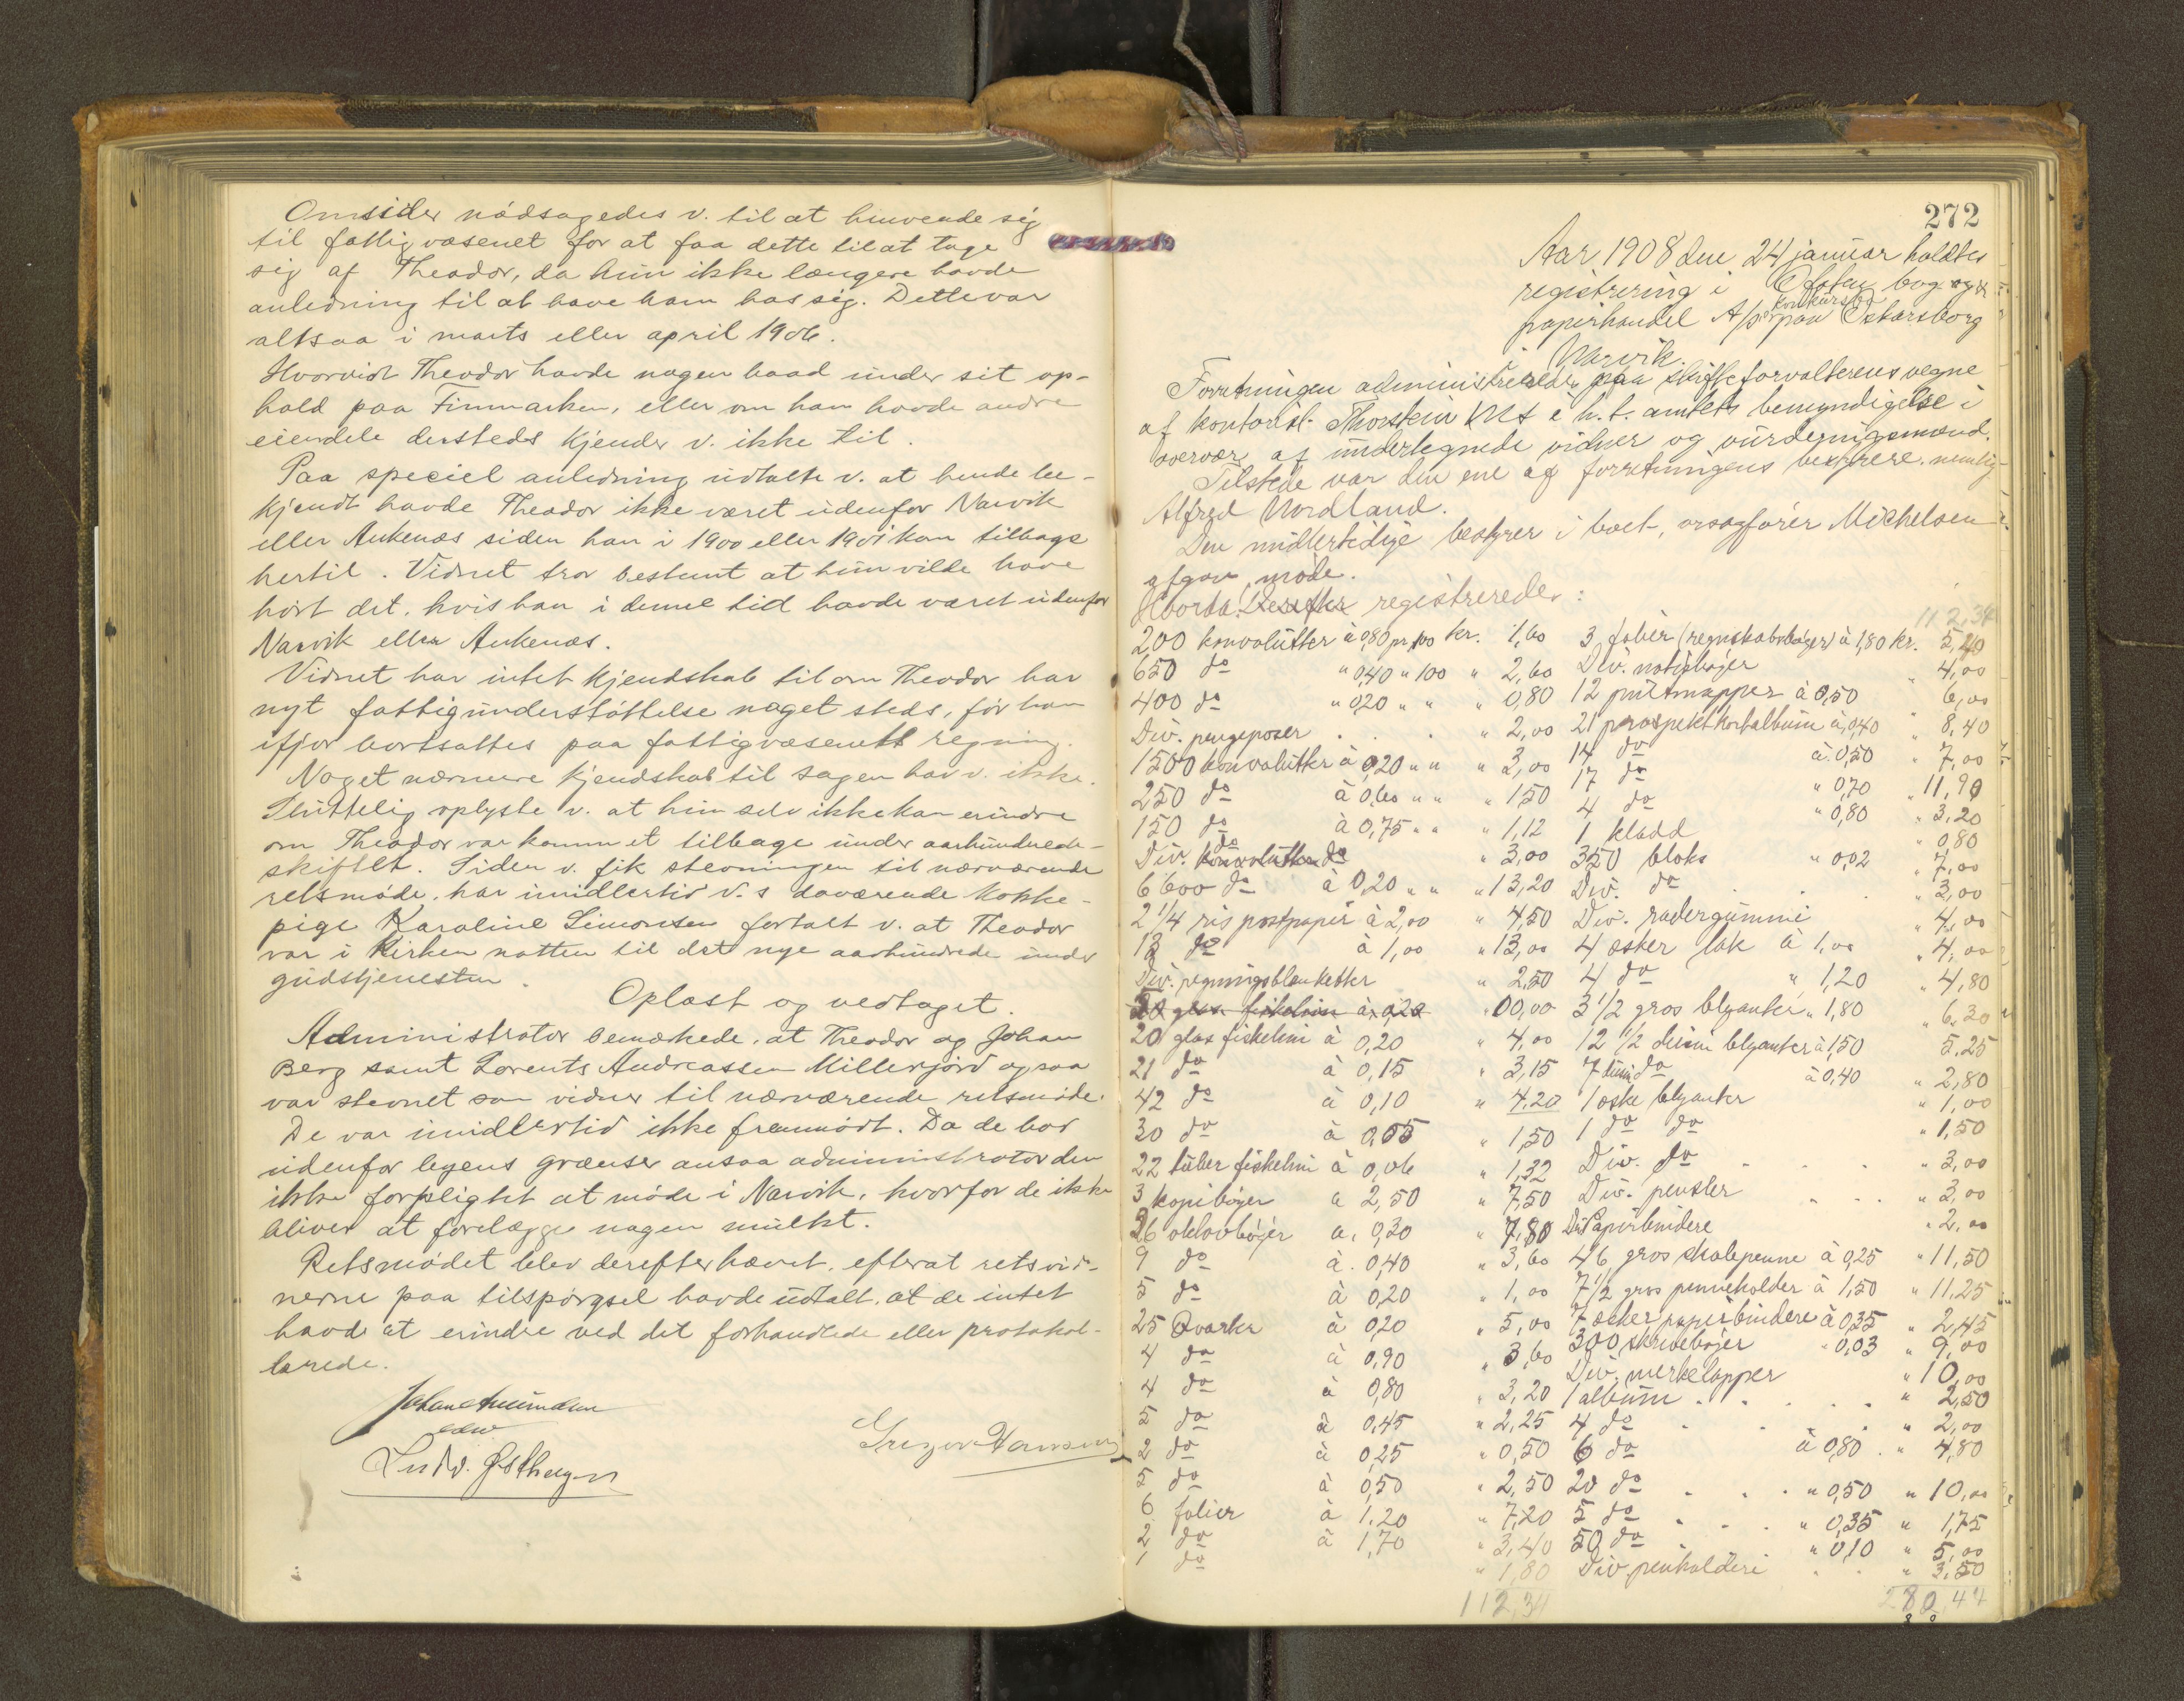 Omsider nödsagedes v. til at henvende sig
til fattigvæsenet for at faa dette til at tage
sig af Theodor, da hun ikke længere havde
anledning til at have ham hos sig. Dette var
altsaa i marts eller april 1906.
Hvorvidt Theodor havde nogen baad under sit op-
hold paa Finmarken, eller om han havde andre
eiendele dersteds kjender v. ikke til.
Paa speciel anledning udtalte v. at hende be-
kjendt havde Theodor ikke været udenfor Narvik
eller Ankenæs siden han i 1900 eller 1901 kom tilbage
hertil. Vidnet tror bestemt at hun vilde have
hört det, hvis han i denne tid havde været udenfor
Narvik eller Ankenæs.
Vidnet har intet kjendskab til om Theodor har
nyt fattigunderstöttelse noget steds, för han
ifjor bortsattes paa fattigvæsenets regning.
Noget nærmere kjendskab til sagen har v. ikke.
Sluttelig oplyste v. at hun selv ikke kan erindre
om Theodor var kommet tilbage under aarhundrede-
skiftet. Siden v. fik stevningen til nærværende
retsmöde, har imidlertid v.s daværende kokke-
pige Karoline Simonsen fortalt v. at Theodor
var i kirken natten til det nye aarhundrede under
gudstjenesten.
Oplæst og vedtaget.
Administrator bemærkede, at Theodor og Johan
Berg samt Lorents Andreassen Millerjord ogsaa
var stevnet som vidner til nærværende retsmöde.
De var imidlertid ikke fremmödt. Da de bor
udenfor byens grænser ansaa administrator dem
ikke forpligtet at möde i Narvik, hvorfor de ikke
bliver at forelægge nogen mulkt.
Retsmödet blev derefter hævet, efterat retsvid-
nerne paa tilspörgsel havde udtalt, at de intet
havde at erindre ved det forhandlede eller protokol-
lerede.
Gregor Hansen
272
Aar 1908 den 24 januar holdtes
registrering i Ofoten bog og
papirhandel A/s konkursbo paa Oskarsborg
i Narvik.
Forretningen administreredes paa skifteforvalterens vegne
af kontorist Thorstein e h. t. amtets bemyndigelse i
overvær af undertegnede vidner og vurderingsmænd.
Tilstede var den ene af forretningens bestyrere, nemlig
Alfred Nordland.
Den midlertidige bestyrer i boet, orsagförer Michelsen
afgav möde.
Hvorda Derefter registreredes:
200 konvolutter à 0,80 pr. 100 kr. 1,60
650 do " 0,40 " 100 " 2,60
400 do " 0,20 " " " 0,80
Div. pengeposer . . . " 2,00
1500 konvolutter à 0,20 " " " 3,00
250 do à 0,60 " " " 1,50
150 do à 0,75 " " " 1,12
Div. konvolutter do " 3,00
6600 do à 0,20 " " " 13,20
2 1/4 ris postpapir à 2,00 " 4,50
13 do à 1,00 " 13,00
Div. regningsblanketter " 2,50
20 glas fiskelim à 0,20 " 00,00
20 glas fiskelim à 0,20 " 4,00
21 do à 0,15 " 3,15
42 do à 0,10 " 4,20
30 do à 0,05 " 1,50
22 tuber fiskelim à 0,06 " 1,32
3 kopibøger a 2,50 " 7,50
26 oktavbøger a. 0,30 " 7,80
9 do à 0,40 " 3,60
5 do à 0,20 " 1,00
25 Qvarter à 0,20 " 5,00
4 do à 0,90 " 3,60
4 do à 0,80 " 3,20
5 do à 0,45 " 2,25
2 do à 0,25 " 0,50
5 do à 0,50 " 2,50
6 folier à 1,20 " 7,20
2 do à 1,70 " 3,40
1 do " 1,80
112,34
112,34
3 folier (regnskabsbøger) à 1,80 kr. 5,40
Div. notisbøger " 4,00
12 pultmapper à 0,50 6,00
21 prospektkortalbum à 0,40 " 8,40
14 do à 0,50 " 7,00
17 do " 0,70 " 11,90
4 do " 0,80 " 3,20
1 kladd " 0,80
350 bloks " 0,02 " 7,00
Div. do . . . " 3,00
Div. radergummi " 4,00
4 æsker lak à 1,00 " 4,00
4 do " 1,20 " 4,80
3 1/2 gros blyanter " 1,80 " 6,30
12 1/2 dusin blyanter à 1,50 5,25
7 dusin do à 0,40 " 2,80
1 æske blyanter " 1,00
1 do do " 1,50
Div. do . . . " 3,00
Div. pensler . . . " 3,00
Div Papirbindere " 2,00
46 gros skolepenne à 0,25 " 11,50
7 1/2 gros penneholder à 1,50 " 11,25
7 æsker papirbindere à 0,35 " 2,45
300 skrivebøger " 0,03 " 9,00
Div. merkelapper " 10,00
1 album . . . " 2,50
4 do . . . " 2,00
6 do à 0,80 . " 4,80
20 do . . . " 0,50 " 10,00
5 do . . . " 0,35 " 1,75
50 do " 0,10 " 5,00
Div. penholdere . . " 3,50
280,44